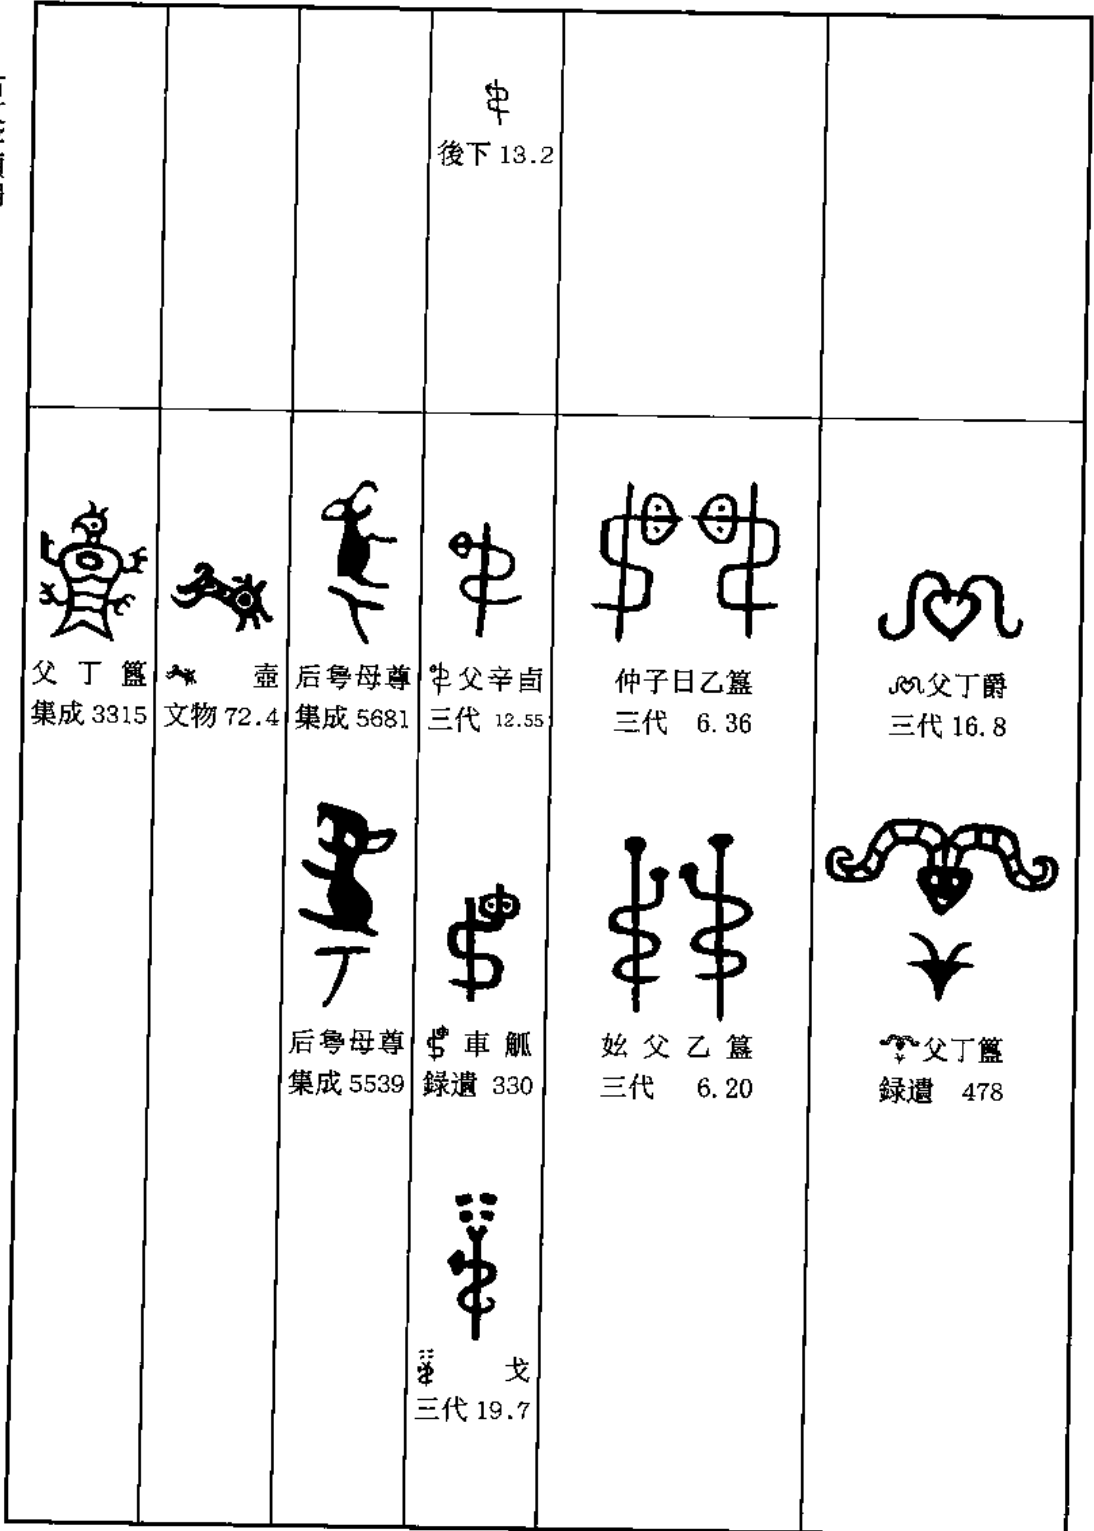 後下 13.2
父丁簋
集成 3315
壺
文物 72.4
后𠭯母尊
集成 5681
父辛卣
三代 12.55
仲子日乙簋
三代 6.36
父丁爵
三代 16.8
后𠭯母尊
集成 5539
車觚
録遺 330
父乙簋
三代 6.20
父丁簋
録遺 478
戈
三代 19.7